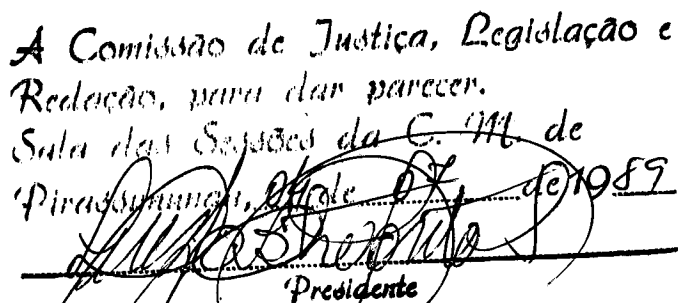 A Comissão de Justiça, Legislação e
Redação, para dar parecer.
Sala das Sessões da C. M. de
Pirassununga, de 07 de 1989
Presidente